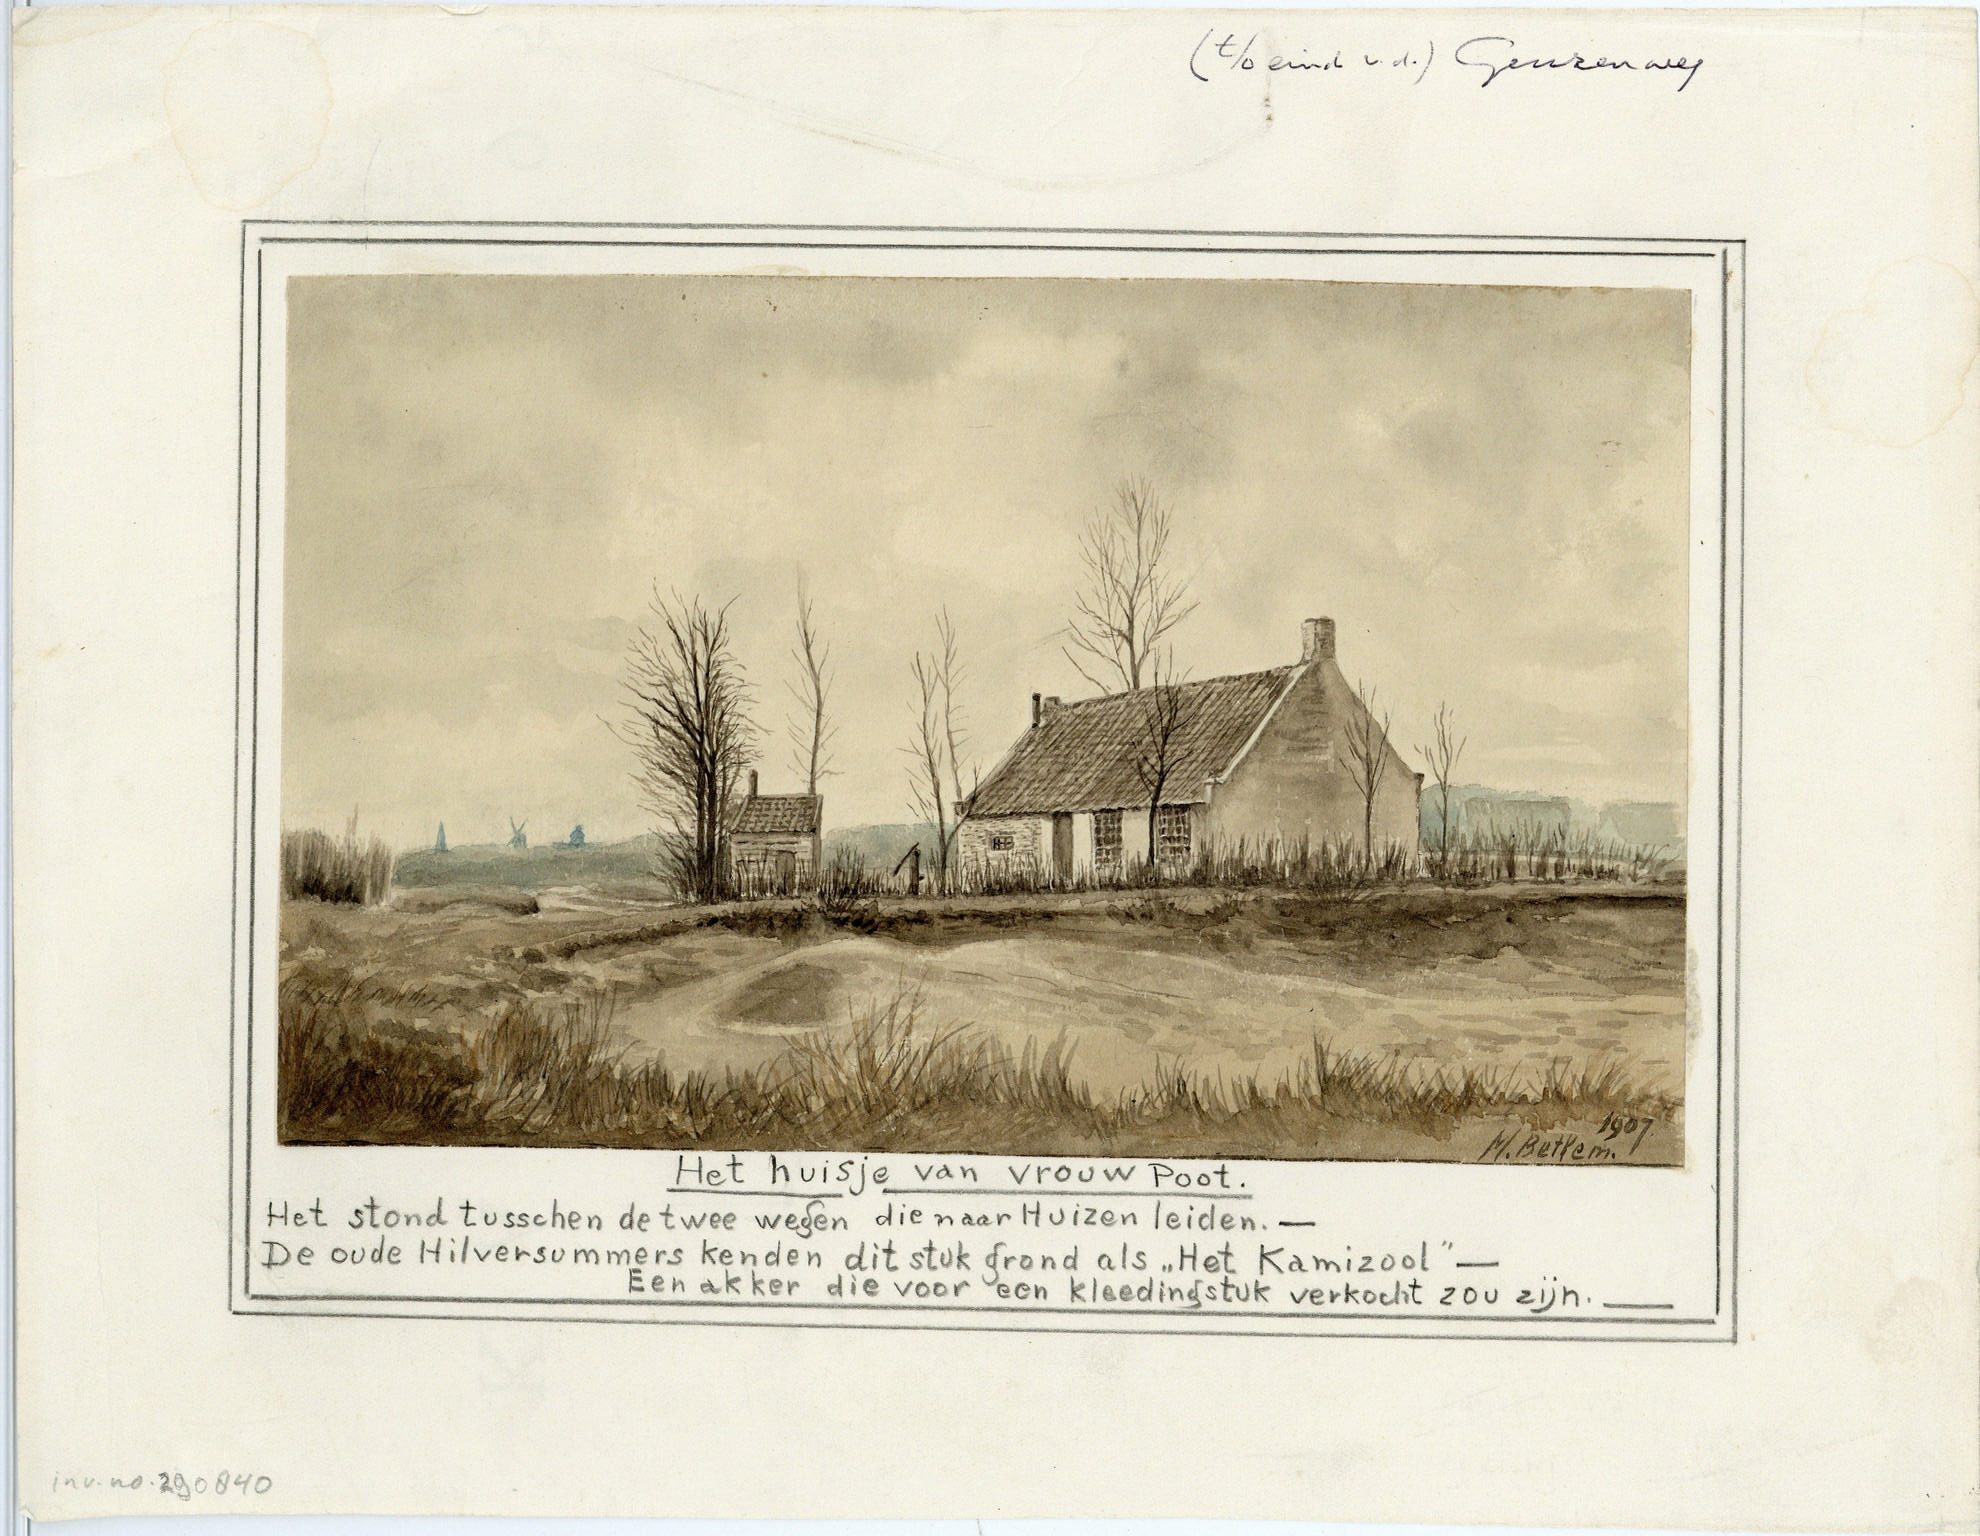 (t/o eind v.d.) Geuzenweg
1907.
M. Betlem.
Het huisje van vrouw Poot.
Het stond tusschen de twee wegen die naar Huizen leiden. —
De oude Hilversummers kenden dit stuk grond als „Het Kamizool” —
Een akker die voor een kleedingstuk verkocht zou zijn. —
inv. no. 290840